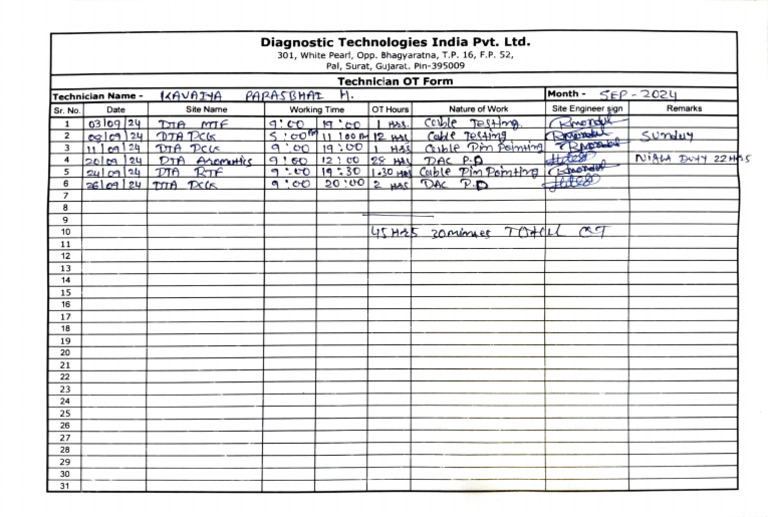 Diagnostic Technologies India Pvt. Ltd.
301, White Pearl, Opp. Bhagyaratna, T.P. 16, F.P. 52,
Pal, Surat, Gujarat. Pin-395009
Technician OT Form
Technician Name - KAVAIYA PARASBHAI M. Month - SEP - 2024
Sr. No. Date Site Name Working Time OT Hours Nature of Work Site Engineer sign Remarks
1 03/09/24 DTA MTF 9:00 19:00 1 HRS. Cable Testing
2 08/09/24 DTA DCLK 5:00 11:00 12 HRS Cable Testing Sunday
3 11/09/24 DTA DCLK 9:00 19:00 1 HRS Cable Pin Pointing
4 20/09/24 DTA Aromatics 9:00 12:00 28 HRS DAC P.D Night Duty 22 HRS
5 24/09/24 DTA RTF 9:00 19:30 1.30 HRS Cable Pin Pointing
6 26/09/24 DTA DCLK 9:00 20:00 2 HRS DAC P.D
7
8
9
10 45 HRS 30 minutes TOTAL OT
11
12
13
14
15
16
17
18
19
20
21
22
23
24
25
26
27
28
29
30
31